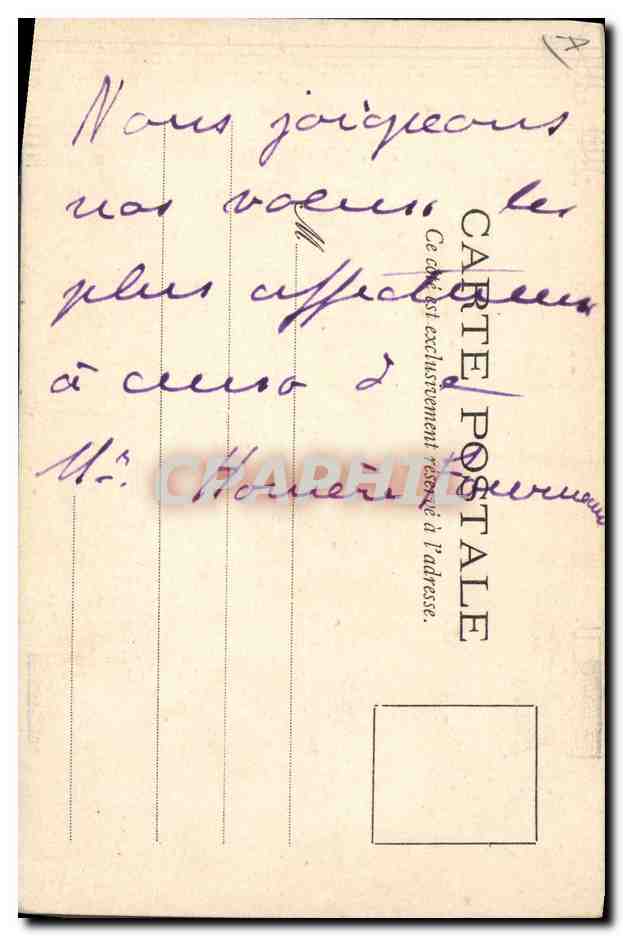 Nous joigneons
nos voeux les
plus affectueux
à ceux de
Mr. Homère
M.
CARTE POSTALE
Ce côté est exclusivement réservé à l'adresse.
CARPHIL